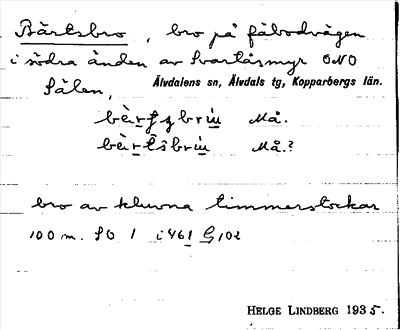 Bärtsbro, bro på fäbodvägen
i södra änden av Svartåsmyr ONO
Sälen, Älvdalens sn, Älvdals tg, Kopparbergs län.
Må.
Må.?
bro av kluvna timmerstockar
100 m. SO 1 i 461 G, 102
HELGE LINDBERG 1935.